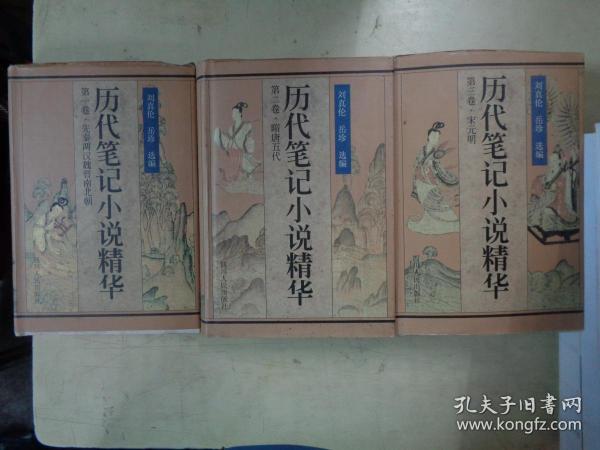 历代笔记小说精华
第一卷·先秦两汉魏晋南北朝
刘真伦 岳珍 选编
历代笔记小说精华
第二卷·隋唐五代
刘真伦 岳珍 选编
四川人民出版社
历代笔记小说精华
第三卷·宋元明
刘真伦 岳珍 选编
四川人民出版社
孔夫子旧书网
www.kongfz.com